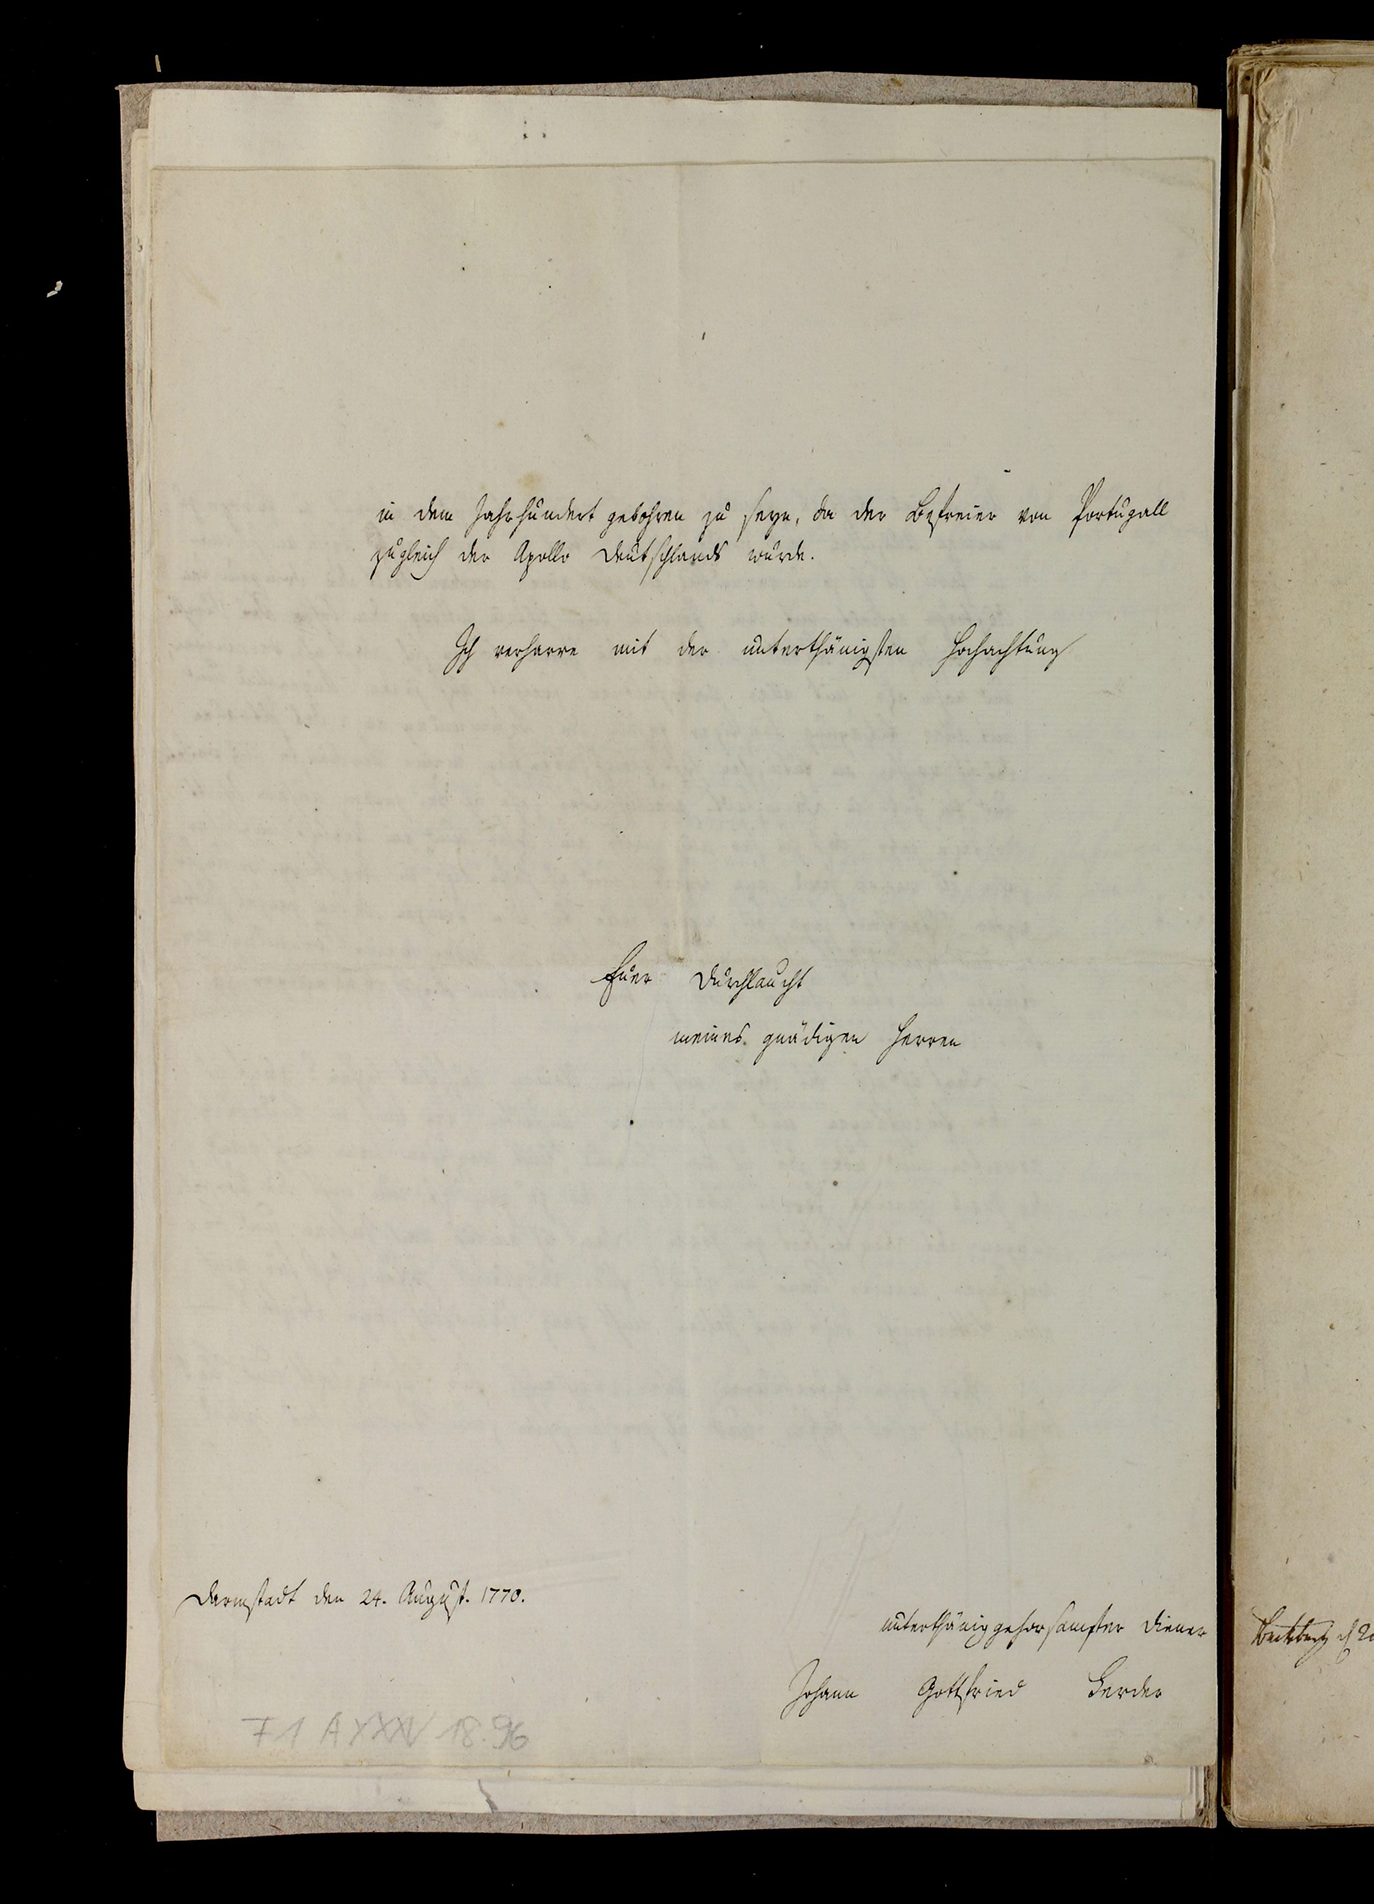 in dem Jahrhundert gebohren zu seyn, da der Befreier von Portugall
zugleich der Apollo Deutschlands wurde.
Ich verharre mit der unterthänigsten Hochachtung
Euer Durchlaucht
meines gnädigen Herren
Darmstadt den 24. August. 1770.
unterthäniggehorsamster Diener
Johann Gottfried Herder
F1 A XXXV 18.96